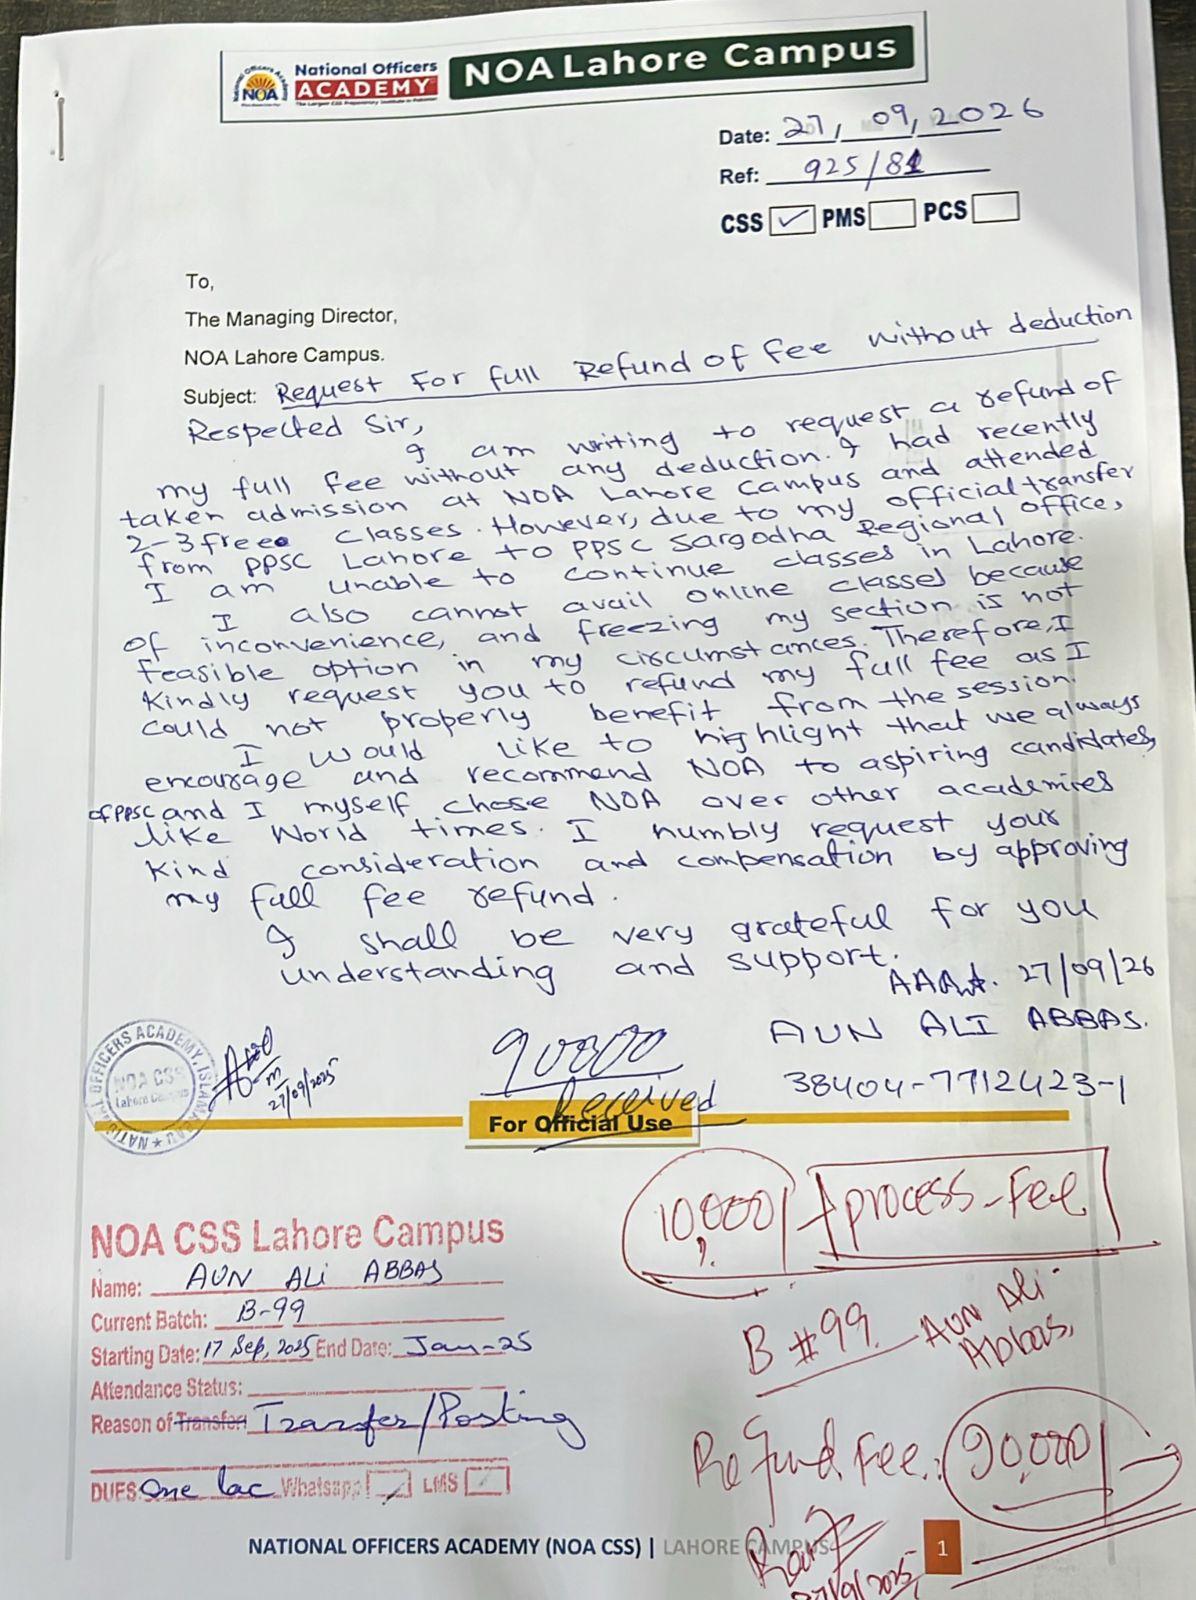 National Officers
ACADEMY
The Largest CSS Preparatory Institute in Pakistan
NOA
NOA Lahore Campus
Date: 27, 09, 2026
Ref: 925/81
CSS ✓ PMS PCS
To,
The Managing Director,
NOA Lahore Campus.
Subject: Request For full Refund of Fee without deduction
Respected Sir,
I am writing to request a refund of
my full fee without any deduction. I had recently
taken admission at NOA Lahore Campus and attended
2-3 free classes. However, due to my official transfer
from PPSC Lahore to PPSC Sargodha Regional office,
I am unable to continue classes in Lahore.
I also cannot avail online classes because
of inconvenience, and freezing my section is not
feasible option in my circumstances. Therefore, I
kindly request you to refund my full fee as I
could not properly benefit from the session.
I would like to highlight that we always
encourage and recommend NOA to aspiring candidates
of PPSC and I myself chose NOA over other academies
like World times. I humbly request your
kind consideration and compensation by approving
my full fee refund.
I shall be very grateful for you
understanding and support.
27/09/26
AUN ALI ABBAS.
38404-7712423-1
NATIONAL OFFICERS ACADEMY, ISLAMABAD
NOA CSS
Lahore Campus
27/09/2025
90000
Received
For Official Use
10,000/ process-Fee
B #99 Aun Ali
Abbas,
Refund Fee: 90,000/
27/9/2025
NOA CSS Lahore Campus
Name: AUN ALi ABBAS
Current Batch: B-99
Starting Date: 17 Sep, 2025 End Date: Jan-25
Attendance Status:
Reason of Transfer: Transfer/Posting
DUES One lac Whatsapp LMS
NATIONAL OFFICERS ACADEMY (NOA CSS) | LAHORE CAMPUS
1